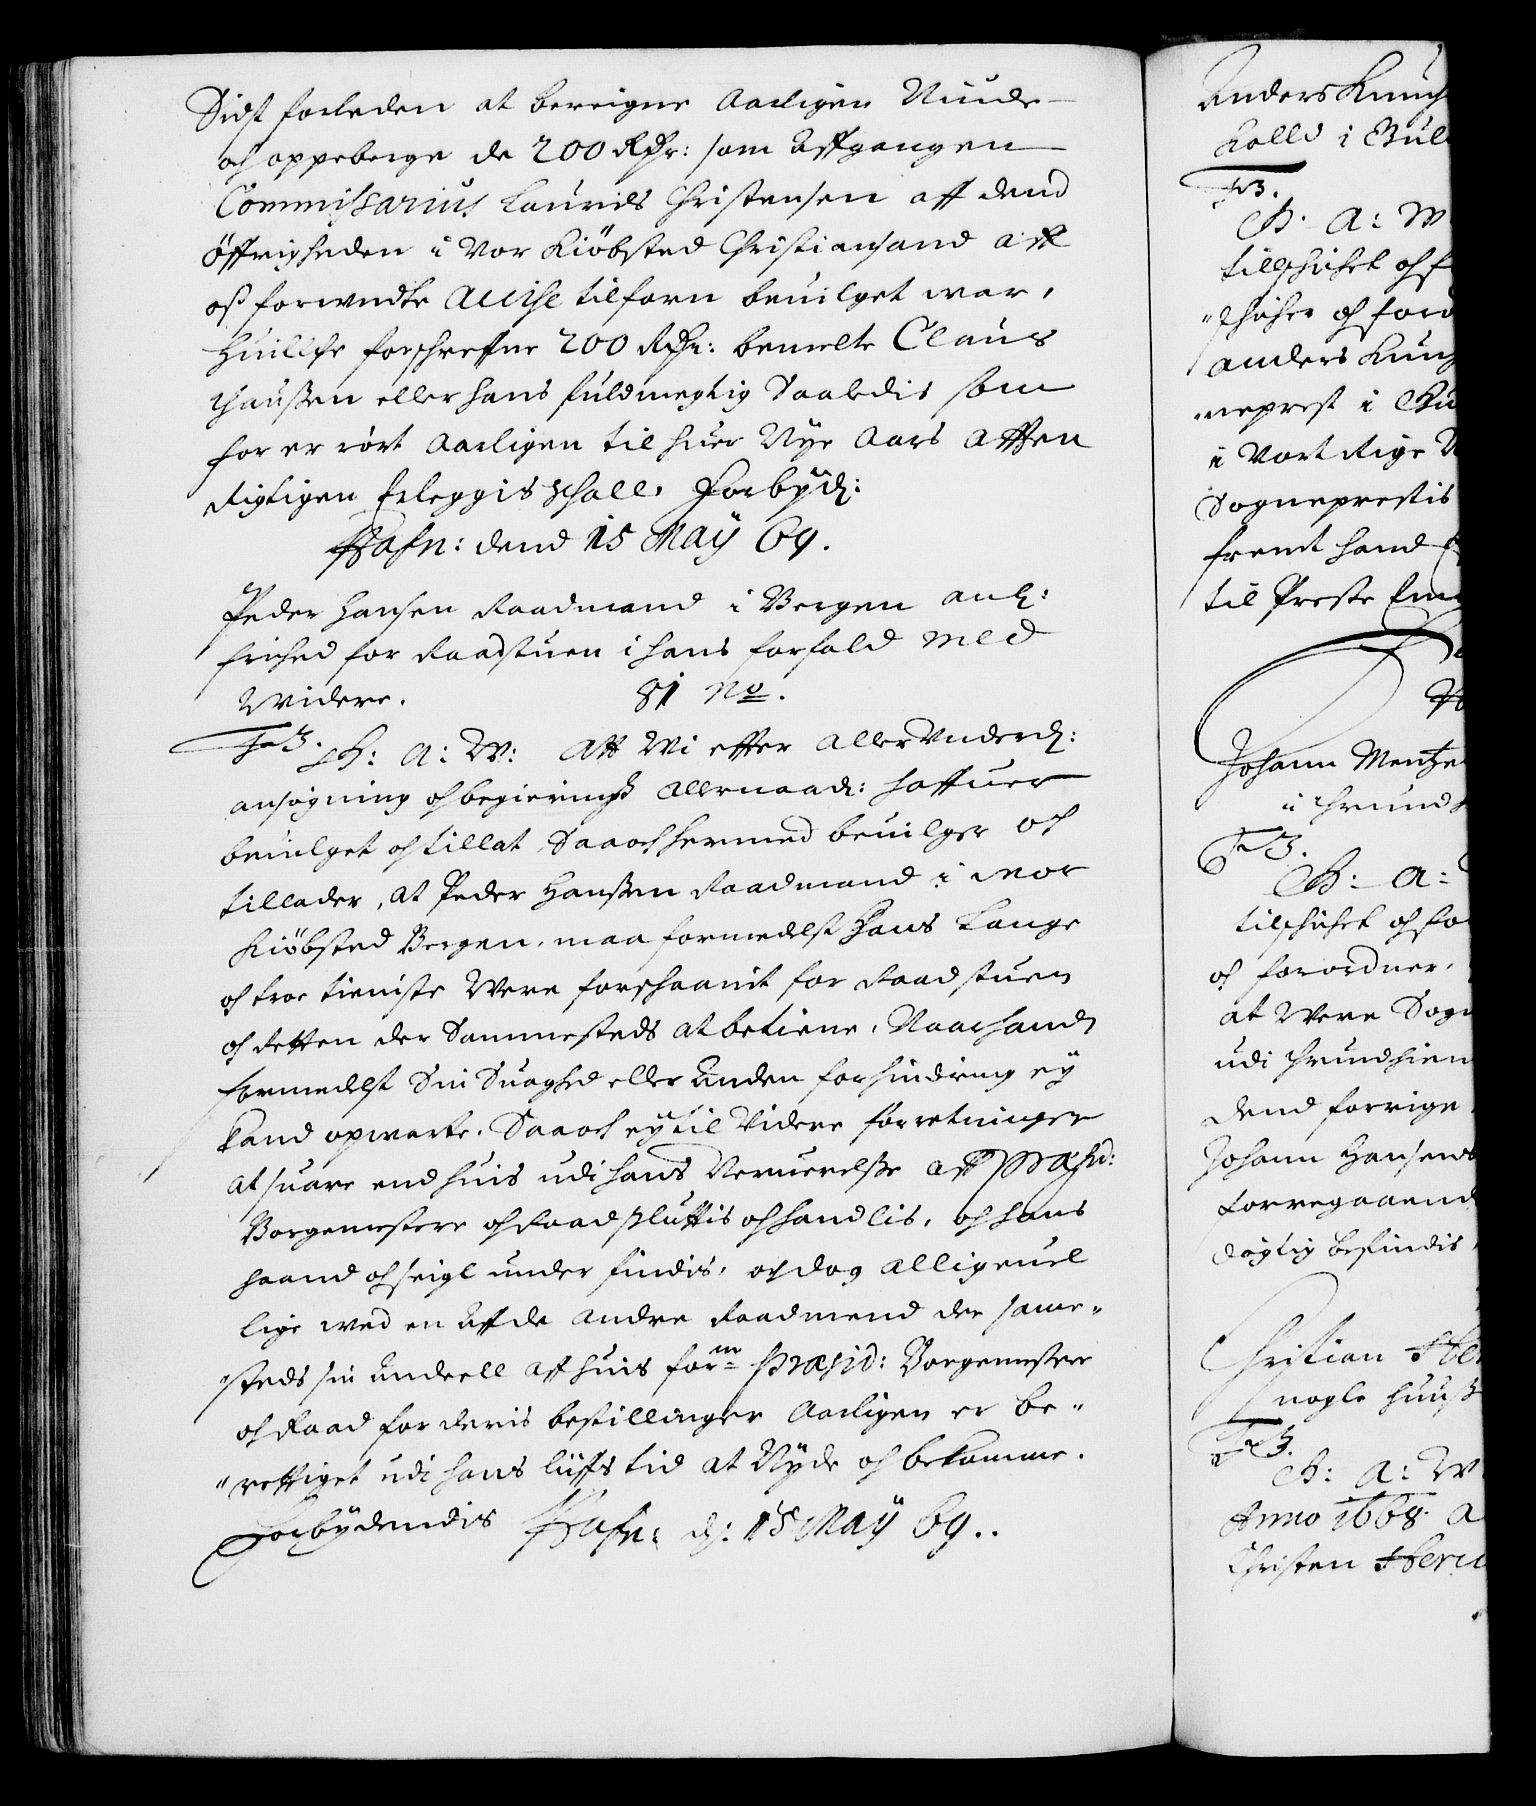 Sidst forleden at bereigne Aarligen Niude
och oppeberge de 200 Rdr: som Affgangen
Commissarius Laurids Christensen aff dend
öffrigheden i Vor Kiöbsted Christiansand aff
oß forundte Accise tilforn beuilget war,
Huilche forschreffne 200 Rdr: bemelte Claus
Hanßen eller hans fuldmegtig Saaledis som
for er rört Aarligen til huer Nye Aars Afften
Rigtigen Erleggis schall. Forbyd:
Hafn: dend 15 Maÿ 69.
Peder Hansen Raadmand i Bergen anl:
frihed for Raadstuen i hans forfald med
Widere. 81 No.
F3. G: A: W: Att Wi effter Aller Underd:
ansögning och begiering Allernaad: haffuer
beuilget och tillat, Saa och hermed beuilger och
tillader, at Peder Hanßen Raadmand i wor
Kiöbsted Bergen, maa formedelst Hans Lange
och troe tieniste Were forschaanit for Raadstuen
och Retten der Sammesteds at betiene, Naar hand
formedelst Sin Suaghed eller Anden forhindring eÿ
kand opwarte. Saa och eÿ til Videre forretninger
at suare end huis udi hans Neruerelße aff Præsid:
Borgemestere och Raad sluttis och handlis, och hans
haand och seigl under findis, och dog alligeuel
lige wed en Aff de Andre Raadmend der samme-
steds sin Andeell aff huis form Præsid: Borgemester
och Raad for deris bestillinger Aarligen er be-
rettiget udi hans liiffs tid at Nyde och bekomme.
Forbÿdendis Hafn: d: 15 Maÿ 69..
Anders
Kald i
F3.
G: A: W
tillschichet och f
schicher och ford
Anders
neprest i
i Vort Rige N
Sogneprestis
fremt hand
til Preste Em
Johann Mentze
i Trund
F3.
G: A:
tilschichet och fo
och forordner,
at Were Sogn
udi Trundhiem
Dend forrige
Johann Hansens
forregaaend
dögtig befindis,
Christian
nogle huuß
F3.
G: A: W
Anno 1668. A
Christen